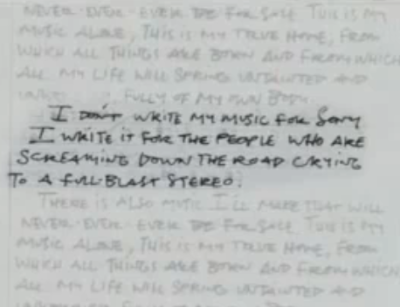 NEVER-EVER-EVER BE FOR SALE THIS IS MY
MUSIC ALONE, THIS IS MY TRUE HOME, FROM
WHICH ALL THINGS ARE BORN AND FROM WHICH
ALL MY LIFE WILL SPRING UNTAINTED AND
FULLY OF MY OWN BODY.
I DON'T WRITE MY MUSIC FOR SONY
I WRITE IT FOR THE PEOPLE WHO ARE
SCREAMING DOWN THE ROAD CRYING
TO A FULL-BLAST STEREO.
THERE IS ALSO MUSIC I'LL MAKE THAT WILL
NEVER-EVER-EVER BE FOR SALE THIS IS MY
MUSIC ALONE, THIS IS MY TRUE HOME, FROM
WHICH ALL THINGS ARE BORN AND FROM WHICH
ALL MY LIFE WILL SPRING UNTAINTED AND